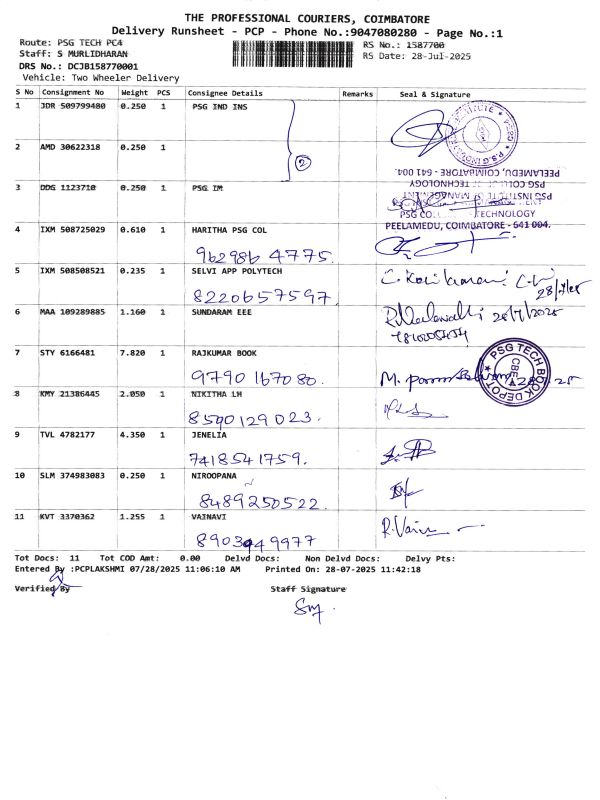 THE PROFESSIONAL COURIERS, COIMBATORE
Delivery Runsheet - PCP - Phone No.:9047080280 - Page No.:1
Route: PSG TECH PC4 RS No.: 1587700
Staff: S MURLIDHARAN RS Date: 28-Jul-2025
DRS No.: DCJB158770001
Vehicle: Two Wheeler Delivery
S No Consignment No Weight PCS Consignee Details Remarks Seal & Signature
1 JDR 509799480 0.250 1 PSG IND INS
2 AMD 30622318 0.250 1
2
PEELAMEDU, COIMBATORE - 641 004.
PSG COLLEGE OF TECHNOLOGY
PSG INSTITUTE OF MANAGEMENT
3 DDG 1123710 0.250 1 PSG IM
TECHNOLOGY
PEELAMEDU, COIMBATORE - 641 004.
4 IXM 508725029 0.610 1 HARITHA PSG COL
962986 4775
5 IXM 508508521 0.235 1 SELVI APP POLYTECH
8220657597
6 MAA 109289885 1.160 1 SUNDARAM EEE
28/7/2025
7 STY 6166481 7.820 1 RAJKUMAR BOOK
9790 167080.
PSG TECH BOOK DEPOT
CBE
8 KMY 21386445 2.050 1 NIKITHA LH
8590129023.
9 TVL 4782177 4.350 1 JENELIA
7418541759.
10 SLM 374983083 0.250 1 NIROOPANA
8489250522.
11 KVT 3370362 1.255 1 VAINAVI
8903949977
Tot Docs: 11 Tot COD Amt: 0.00 Delvd Docs: Non Delvd Docs: Delvy Pts:
Entered By :PCPLAKSHMI 07/28/2025 11:06:10 AM Printed On: 28-07-2025 11:42:18
Verified By Staff Signature